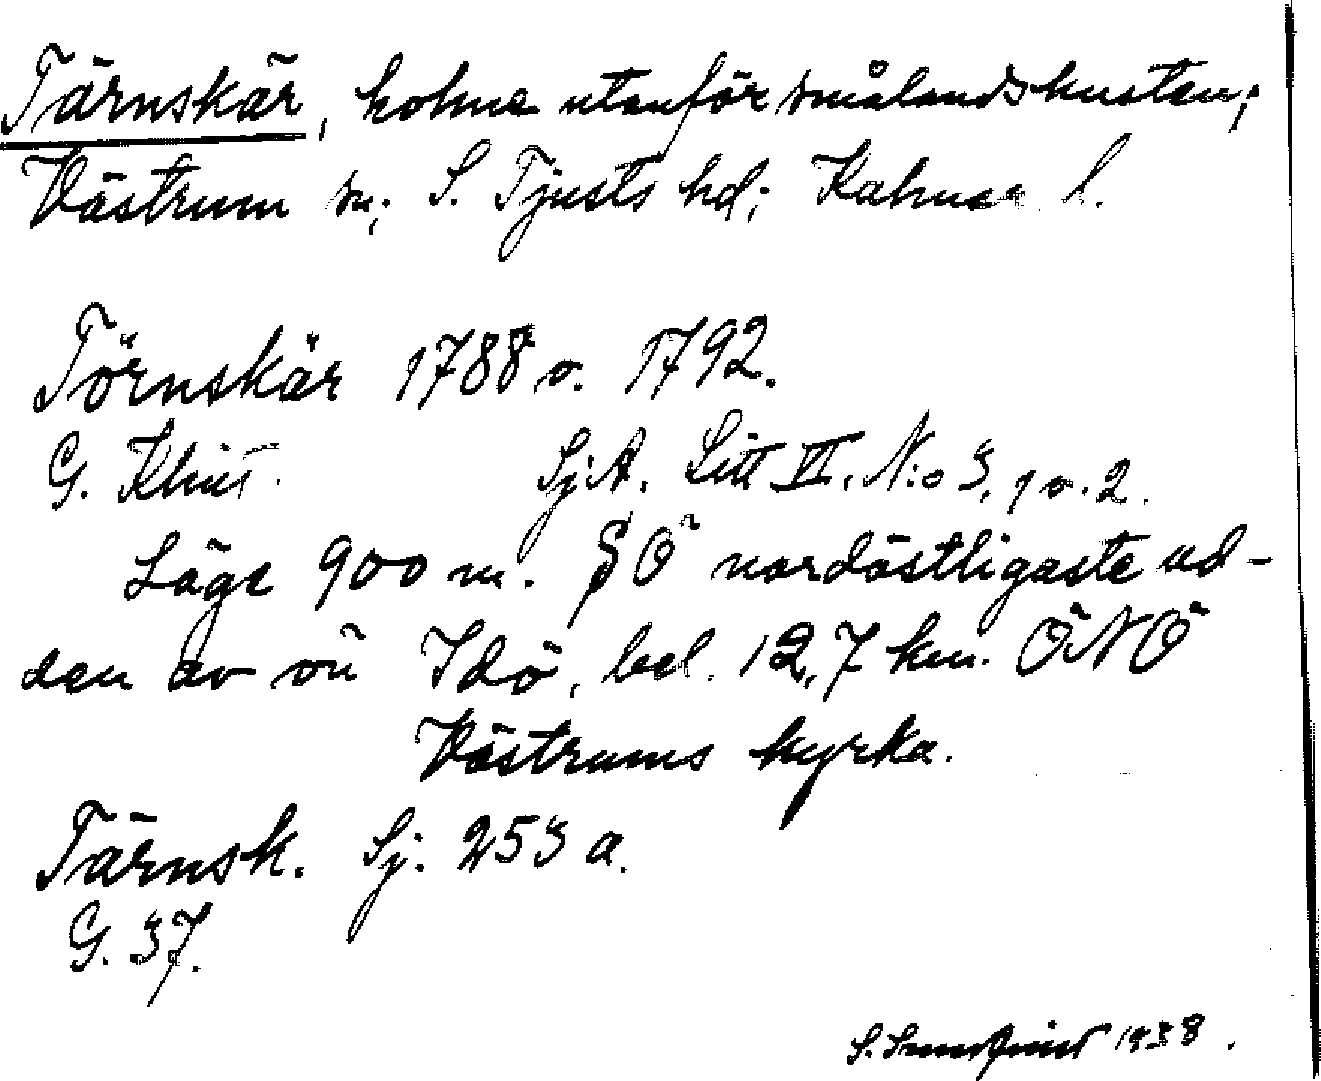 Tärnskär, holme utanför smålandskusten;
Västrum sn; S. Tjusts hd; Kalmar l.
Törnskär 1788 o. 1792.
G. Klint. SjA. Litt VI. N:o 3, 1 o. 2.
Läge 900 m. SÖ nordöstligaste ud-
den av ön Idö, bel. 12,7 km. ÖNÖ
Västrums kyrka.
Tärnsk. Sj. 253 a.
G. 37.
S. 1938.